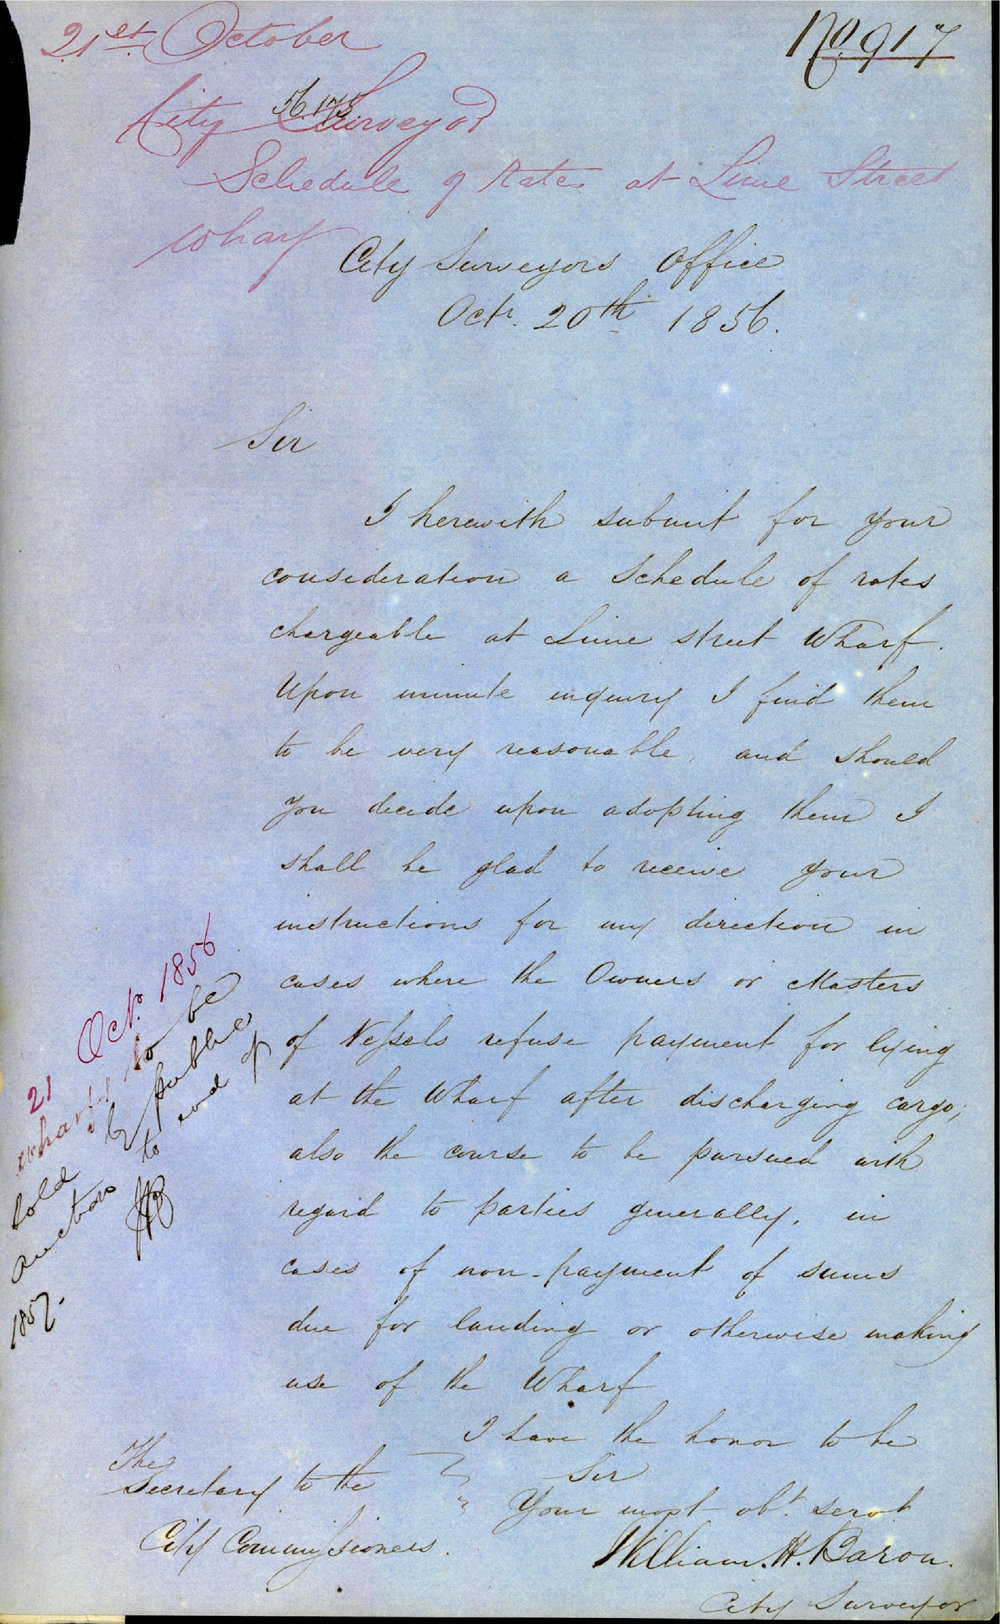 21st October
No. 917
56.175
City Surveyor
Schedule of Rates at Lime Street
Wharf
City Surveyors Office
Octr. 20th 1856.
Sir
I herewith submit for your
consideration a Schedule of rates
chargeable at Lime street Wharf.
Upon minute inquiry I find them
to be very reasonable, and should
you decide upon adopting them I
shall be glad to receive your
instructions for my direction in
cases where the Owners or Masters
of Vessels refuse payment for lying
at the Wharf after discharging cargo;
also the course to be pursued with
regard to parties generally, in
cases of non-payment of sums
due for landing or otherwise making
use of the Wharf
I have the honor to be
Sir
Your most obt. servt
William. H. Baron.
City Surveyor
The
Secretary to the
City Commissioners.
21 Octr. 1856
wharf to be
sold by public
auction to end of
1857.